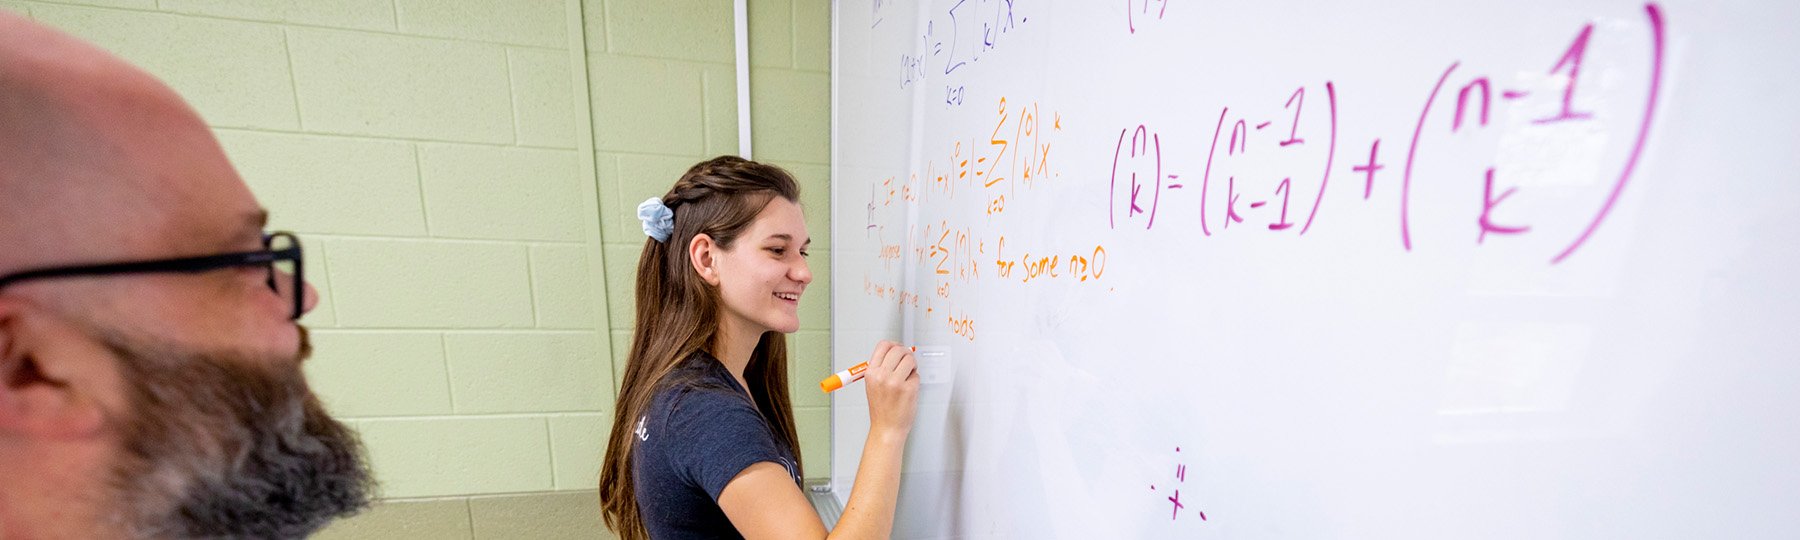 (1+x)^n = ∑_{k=0} (k) x.
pf If n=0 (1+x)^0 = 1 = ∑_{k=0}^{0} (0 k) x^k.
Suppose (1+x)^n = ∑_{k=0}^{n} (n k) x^k for some n≥0.
We need to prove it holds
(n k) = (n-1 k-1) + (n-1 k)